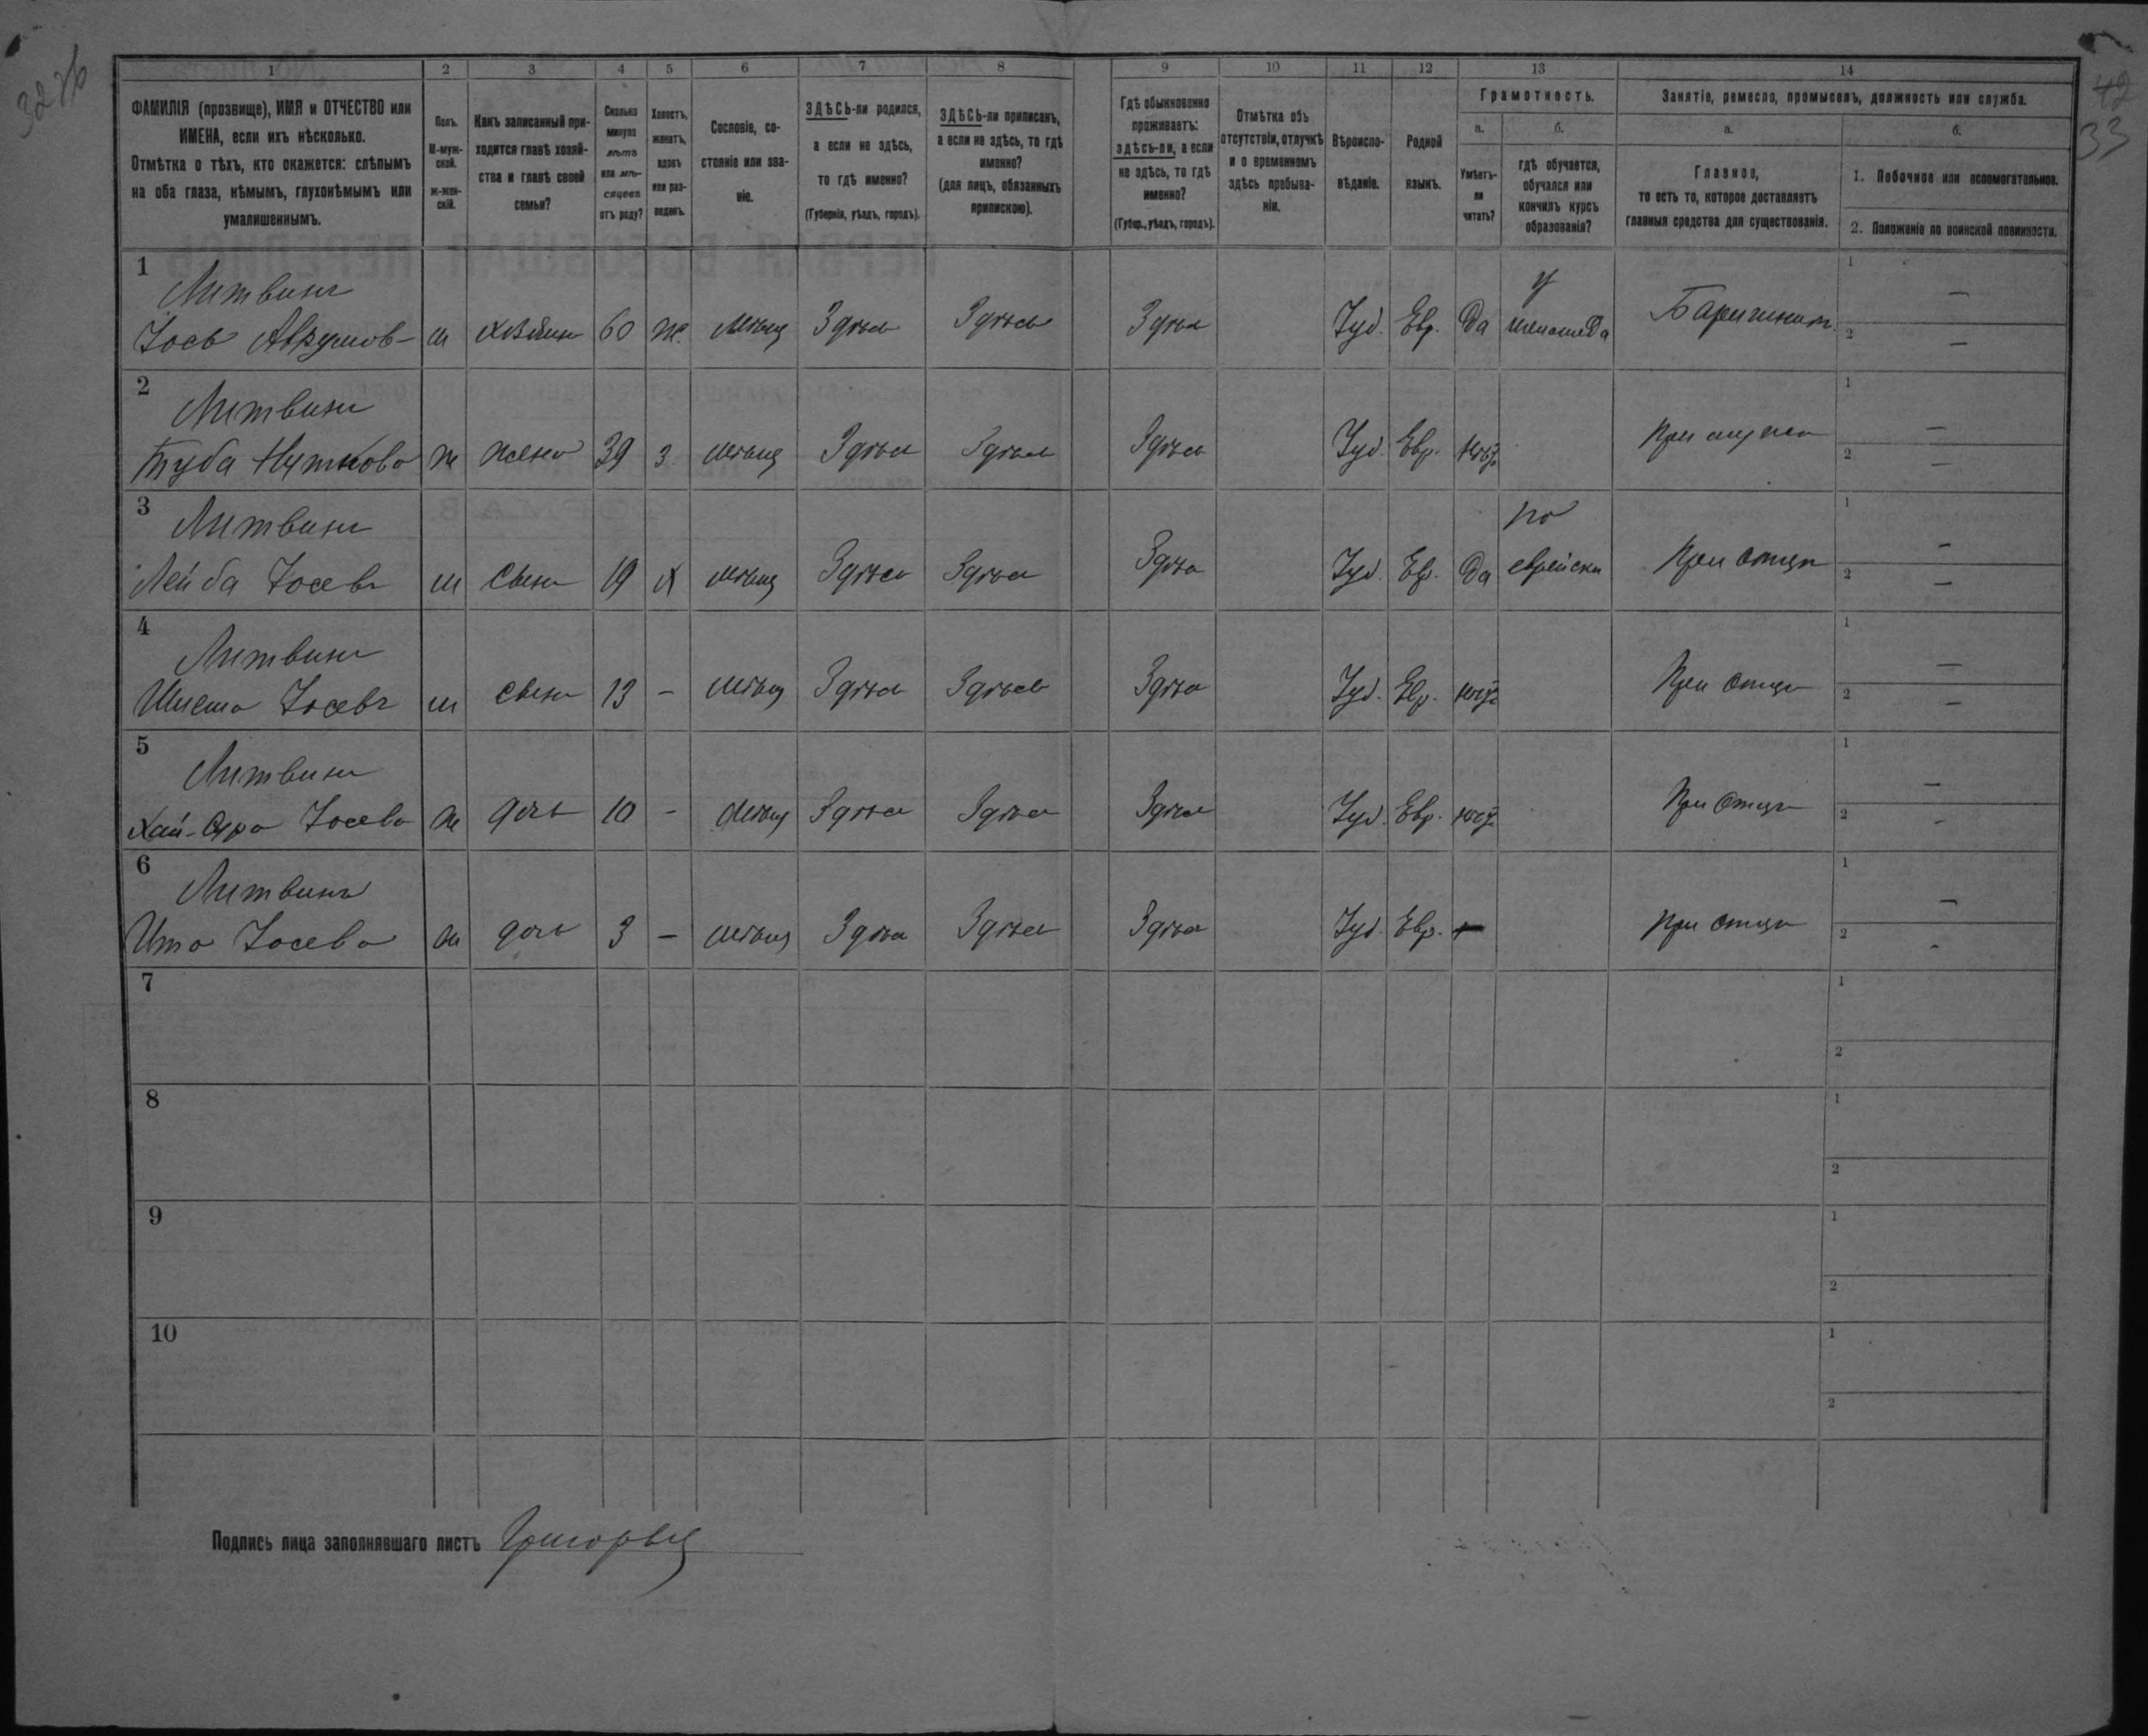 32 об
42
33
1 2 3 4 5 6 7 8 9 10 11 12 13 14
ФАМИЛІЯ (прозвище), ИМЯ и ОТЧЕСТВО или ИМЕНА, если ихъ нѣсколько.
Отмѣтка о тѣхъ, кто окажется: слѣпымъ на оба глаза, нѣмымъ, глухонѣмымъ или умалишеннымъ.
Полъ. М-мужской. Ж-женскій.
Какъ записанный приходится главѣ хозяйства и главѣ своей семьи?
Сколько минуло лѣтъ или мѣсяцевъ отъ роду?
Холостъ, женатъ, вдовъ или разведенъ.
Сословіе, состояніе или званіе.
ЗДѢСЬ-ли родился, а если не здѣсь, то гдѣ именно? (Губернія, уѣздъ, городъ).
ЗДѢСЬ-ли приписанъ, а если не здѣсь, то гдѣ именно? (для лицъ, обязанныхъ припискою).
Гдѣ обыкновенно проживаетъ: здѣсь-ли, а если не здѣсь, то гдѣ именно? (Губер., уѣздъ, городъ).
Отмѣтка объ отсутствіи, отлучкѣ и о временномъ здѣсь пребываніи.
Вѣроисповѣданіе.
Родной языкъ.
Грамотность.
а. Умѣетъ-ли читать?
б. гдѣ обучается, обучался или кончилъ курсъ образованія?
Занятіе, ремесло, промыселъ, должность или служба.
а. Главное, то есть то, которое доставляетъ главныя средства для существованія.
б.
1. Побочное или вспомогательное.
2. Положеніе по воинской повинности.
1 Литвинъ
Іось Аврумов- м хозяин 60 ж. мѣщ Здѣсь Здѣсь Здѣсь Іуд. Евр. Да у меламеда 1 — 2 —
2 Литвин
Туба ж жена 39 з. мѣщ Здѣсь Здѣсь Здѣсь Іуд. Евр. нѣт При мужѣ 1 — 2 —
3 Литвин
Лейба Іосевъ м сынъ 19 х мѣщ Здѣсь Здѣсь Здѣсь Іуд. Евр. Да по еврейски При отцѣ 1 — 2 —
4 Литвин
Іосевъ м сынъ 13 — мѣщ Здѣсь Здѣсь Здѣсь Іуд. Евр. нѣт При отцѣ 1 — 2 —
5 Литвин
Хая-Сура Іосева ж дочь 10 — мѣщ Здѣсь Здѣсь Здѣсь Іуд. Евр. нѣт При отцѣ 1 — 2 -
6 Литвинъ
Ита Іосева ж дочь 3 — мѣщ Здѣсь Здѣсь Здѣсь Іуд. Евр. — При отцѣ 1 — 2 -
7 1 2
8 1 2
9 1 2
10 1 2
Подпись лица заполнявшаго листъ